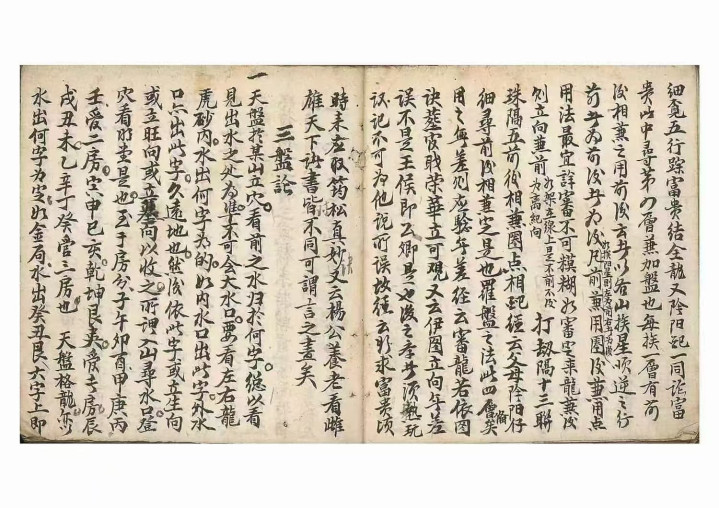 細覓五行踪富貴結全龍又陰陽記一同論富
貴此中尋第八層兼加盤也每换一層有前
後相兼之用前後云者以右山挨星順逆之行
前者为前後者为後凡前兼用圈後兼用点
用法最宜詳審不可模糊如審定来龍兼後
则立向兼前
打刼隔十三聯
珠隔五前後相兼圈点相記經云父母陰陽仔
細尋前後相兼定是也羅盤之法此四層矣
用之無差则应驗無差経云審龍若依圖
訣葬官职荣華立可观又云伊图立向無差
误不是王侯即公卿是也後之学者须熟玩
识记不可为他说所误故経云形求富貴须
時未应取筠松真妙又云楊公養老看雌
雄天下诸書皆不同可謂言之盡矣
三盤訟
一
天盤於某山立穴看前之水归於何字縂以看
見出水之处为準不可会大水口要看左右龍
虎砂内水出何字为的如内水口出此字外水
口六出此字久遠地也然後依此字或立生向
或立旺向或立墓向以收之所謂入山尋水口登
穴看明堂是也至于房分子午卯酉甲庚丙
壬爱二房寅申巳亥乾坤艮巽爱長房辰
戌丑未乙辛丁癸管三房也 天盤格龍
水出何字为定如金局水出癸丑艮六字上即